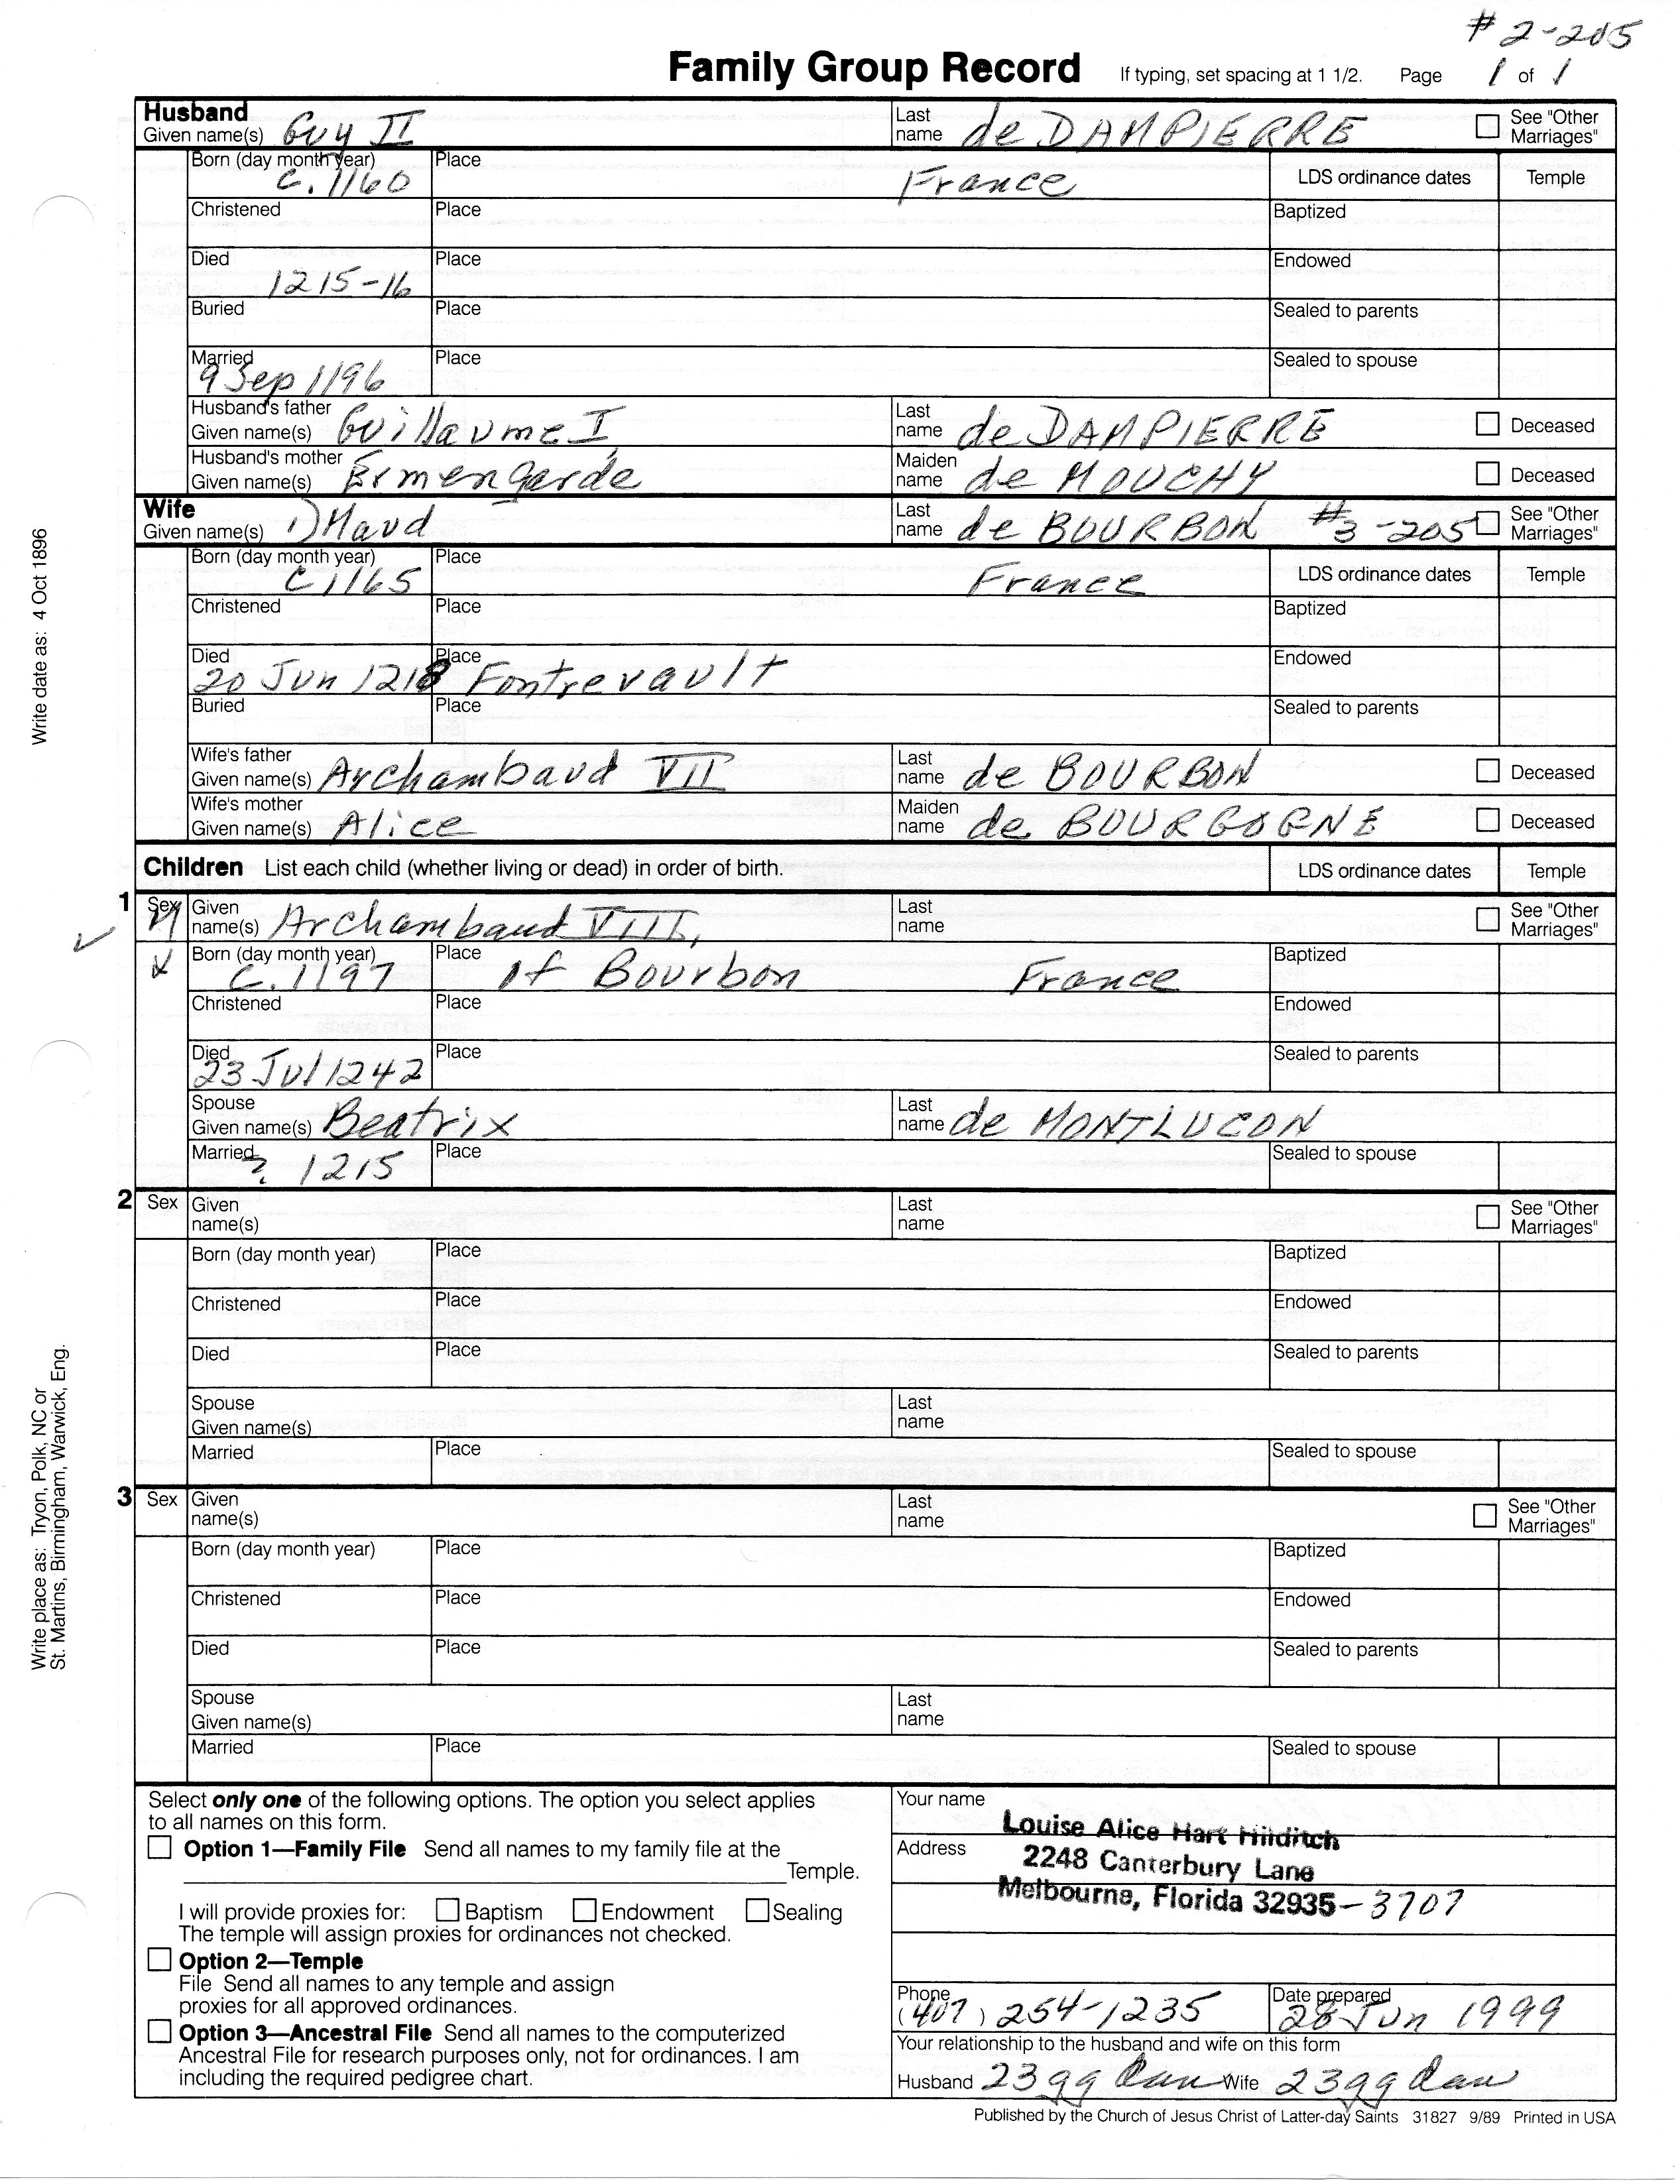 # 2-205
Family Group Record If typing, set spacing at 1 1/2. Page 1 of 1
Husband
Given name(s) Guy II Last name de DAMPIERRE See "Other Marriages"
Born (day month year) c. 1160 Place France LDS ordinance dates Temple
Christened Place Baptized
Died 1215-16 Place Endowed
Buried Place Sealed to parents
Married 9 Sep 1196 Place Sealed to spouse
Husband's father Given name(s) Guillaume I Last name de DAMPIERRE Deceased
Husband's mother Given name(s) Ermengarde Maiden name de MOUCHY Deceased
Wife
Given name(s) 1) Maud Last name de BOURBON #3-205 See "Other Marriages"
Born (day month year) c 1165 Place France LDS ordinance dates Temple
Christened Place Baptized
Died 20 Jun 1218 Place Fontrevault Endowed
Buried Place Sealed to parents
Wife's father Given name(s) Archambaud VII Last name de BOURBON Deceased
Wife's mother Given name(s) Alice Maiden name de BOURGOGNE Deceased
Children List each child (whether living or dead) in order of birth. LDS ordinance dates Temple
1 Sex M Given name(s) Archambaud VIII, Last name See "Other Marriages"
Born (day month year) c. 1197 Place of Bourbon France Baptized
Christened Place Endowed
Died 23 Jul 1242 Place Sealed to parents
Spouse Given name(s) Beatrix Last name de MONTLUCON
Married ? 1215 Place Sealed to spouse
2 Sex Given name(s) Last name See "Other Marriages"
Born (day month year) Place Baptized
Christened Place Endowed
Died Place Sealed to parents
Spouse Given name(s) Last name
Married Place Sealed to spouse
3 Sex Given name(s) Last name See "Other Marriages"
Born (day month year) Place Baptized
Christened Place Endowed
Died Place Sealed to parents
Spouse Given name(s) Last name
Married Place Sealed to spouse
Select only one of the following options. The option you select applies
to all names on this form.
Option 1—Family File Send all names to my family file at the
Temple.
I will provide proxies for: Baptism Endowment Sealing
The temple will assign proxies for ordinances not checked.
Option 2—Temple
File Send all names to any temple and assign
proxies for all approved ordinances.
Option 3—Ancestral File Send all names to the computerized
Ancestral File for research purposes only, not for ordinances. I am
including the required pedigree chart.
Your name Louise Alice Hart Hilditch
Address 2248 Canterbury Lane
Melbourne, Florida 32935-3707
Phone (407) 254-1235 Date prepared 28 Jun 1999
Your relationship to the husband and wife on this form
Husband 23 gg dau Wife 23 gg dau
Published by the Church of Jesus Christ of Latter-day Saints 31827 9/89 Printed in USA
Write date as: 4 Oct 1896
Write place as: Tryon, Polk, NC or
St. Martins, Birmingham, Warwick, Eng.